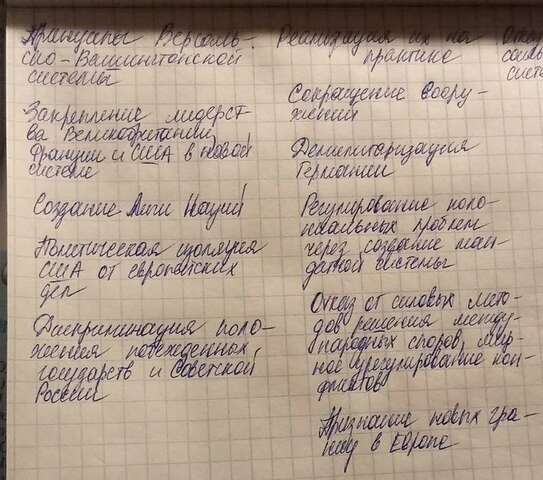 Принципы Версаль-
ско-Вашингтонской
системы
Закрепление лидерст-
ва Великобритании,
Франции и США в новой
системе
Создание Лиги Наций
Политическая изоляция
США от европейских
дел
Дискриминация поло-
жения побежденных
государств и Советской
России
Реализация их на
практике
Сокращение воору-
жений
Демилитаризация
Германии
Регулирование коло-
ниальных проблем
через создание ман-
датной системы
Отказ от силовых мето-
дов решения между-
народных споров, мир-
ное урегулирование кон-
фликтов
Признание новых гра-
ниц в Европе